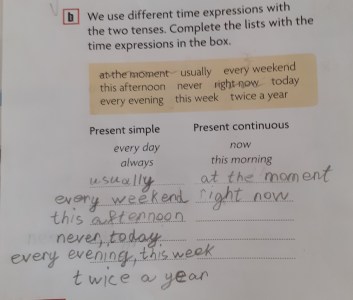 b We use different time expressions with
the two tenses. Complete the lists with the
time expressions in the box.
at the moment usually every weekend
this afternoon never right now today
every evening this week twice a year
Present simple Present continuous
every day now
always this morning
usually at the moment
every weekend right now
this afternoon
never, today
every evening, this week
twice a year